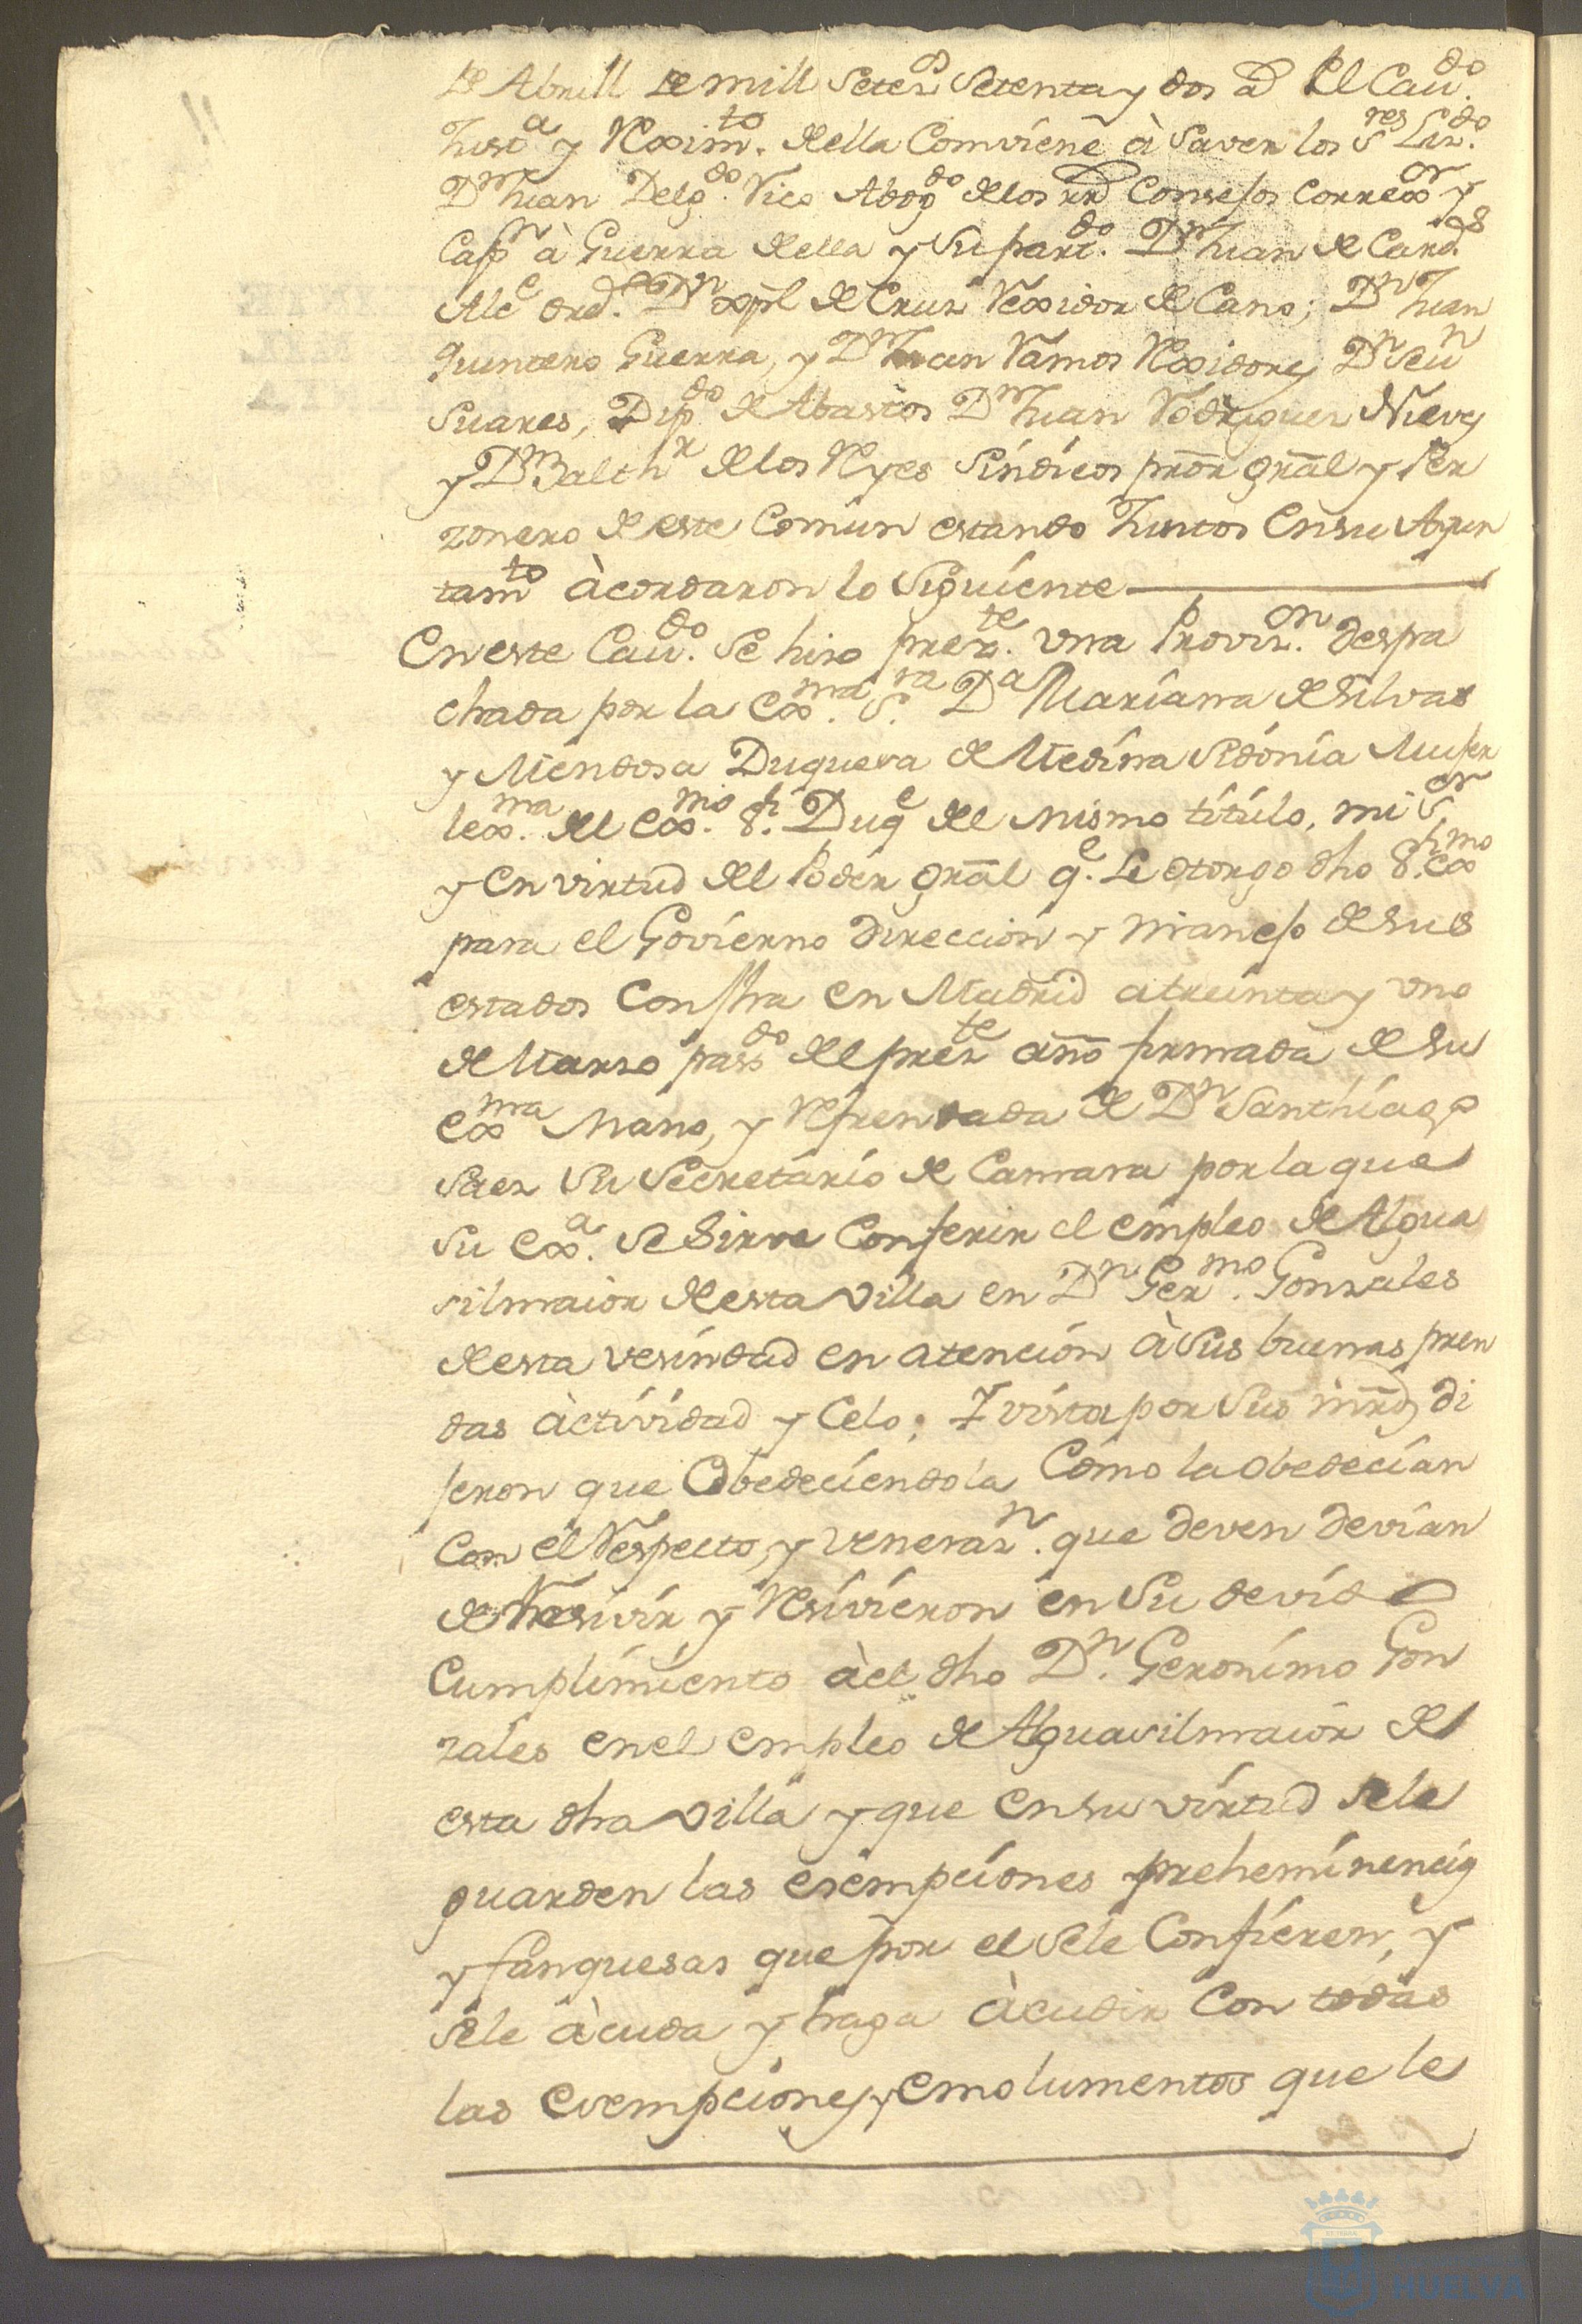 de Abrill de mill Setez.s Setenta y dos a.s El Cav.do
Just.a y Rexim.to della Comviene à Saver los S.res Liz.do
D.n Juan Delg.do Vico Abog.do de los rr.s Consejos Correx.or y
Cap.n à Guerra della y Su part.do D.n Juan de Card.s
Alc.e ord.o D.n Xpl de Cruz Rexidor de Cano; D.n Juan
Quintero Guerra, y D.n Juan Ramos Rexidores D.n
Suares, Dip.do de Abastos D.n Juan Rodriguez Nieves
y D.n Balth.r de los Reyes Síndicos pror gral y Per
zonero de este Comun estando Juntos en su Ayun
tam.to àcordaron lo Siguiente
En este Cav.do Se hiso prez.te una Proviz.on despa
chada por la Ex.ma S.ra D.a Mariana de Silvas
y Mendosa Duquesa de Medina Sidonia Mujer
lex.ma del Ex.mo S.r Duq.e de el mismo título, mi S.or
y en virtud del Poder gral q.e Le otorgo dho S.r Ex.mo
para el Govierno direccion y manejo de sus
estados Con fha en Madrid a treinta y uno
de Marzo pas.do del prez.te año firmada de Su
Ex.ma Mano, y Refrendada de D.n Santhiago
Saez Su Secretario de Camara por la que
Su Ex.a Se Sirve Conferir el empleo de Algua
silmaior de esta Villa en D.n Ger.mo Gonzales
de esta vesindad en atención à Sus buenas pren
das àctividad y Celo; Y vista por Sus mrds di
jeron que Obedeciendola Cómo la obedecían
Con el Respecto, y veneraz.n que deven devían
de Resivir y Resivieron en Su devido
Cumplimiento àel dho D.n Geronimo Gon
zales en el empleo de Alguasilmaior de
esta dha Villa y que en su virtud se le
guarden las esempciones prehemínencias
y fanquesas que por el se le Confieren, y
se le àcuda y haga àcudir Con todas
las evempciones y Emolumentos que le
HUELVA